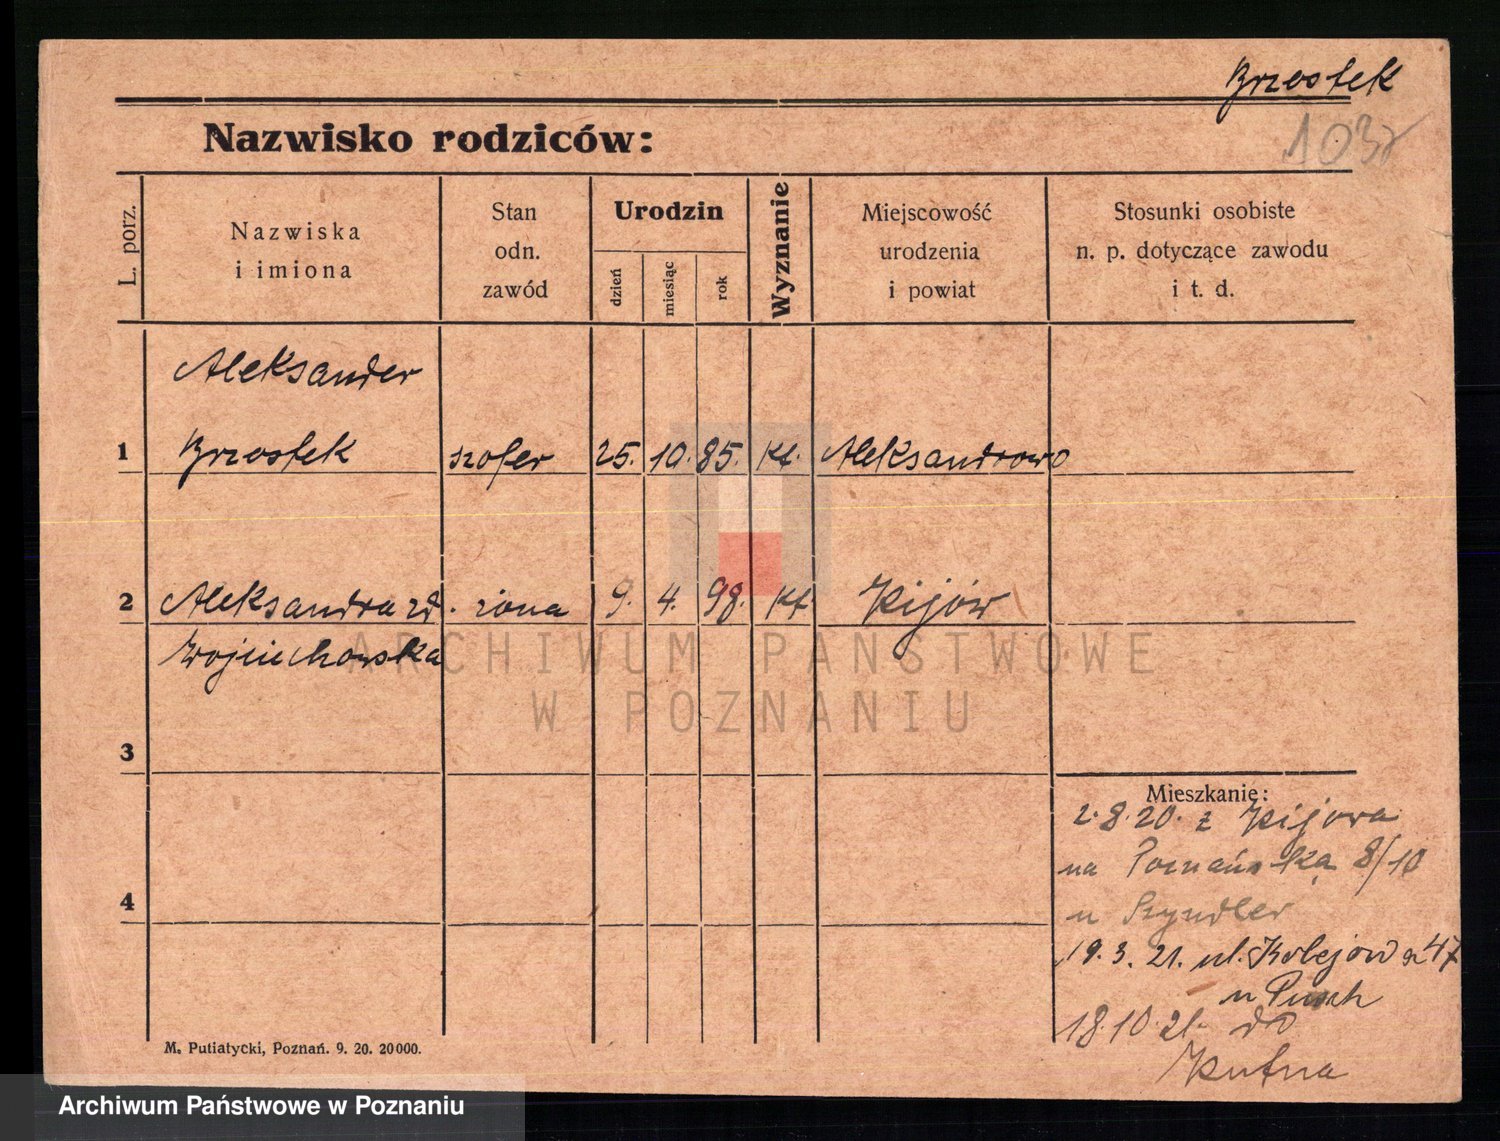 Brzostek
103
Nazwisko rodziców:
L. porz.
Nazwiska
i imiona
Stan
odn.
zawód
Urodzin
dzień
miesiąc
rok
Wyznanie
Miejscowość
urodzenia
i powiat
Stosunki osobiste
n. p. dotyczące zawodu
i t. d.
Aleksander
1 Brzostek szofer 25. 10. 85. kt. Aleksandrowo
2 Aleksandra zd. żona 9. 4. 98. kt. Kijów
Wojciechowska
ARCHIWUM PAŃSTWOWE
W POZNANIU
3
Mieszkanie:
2.8.20. z Kijowa
na Poznańska 8/10
u Szyndler
4
19.3.21. ul. Kolejowa 47
u Pusch
18.10.21. do
Kutna
M. Putiatycki, Poznań. 9. 20. 20000.
Archiwum Państwowe w Poznaniu